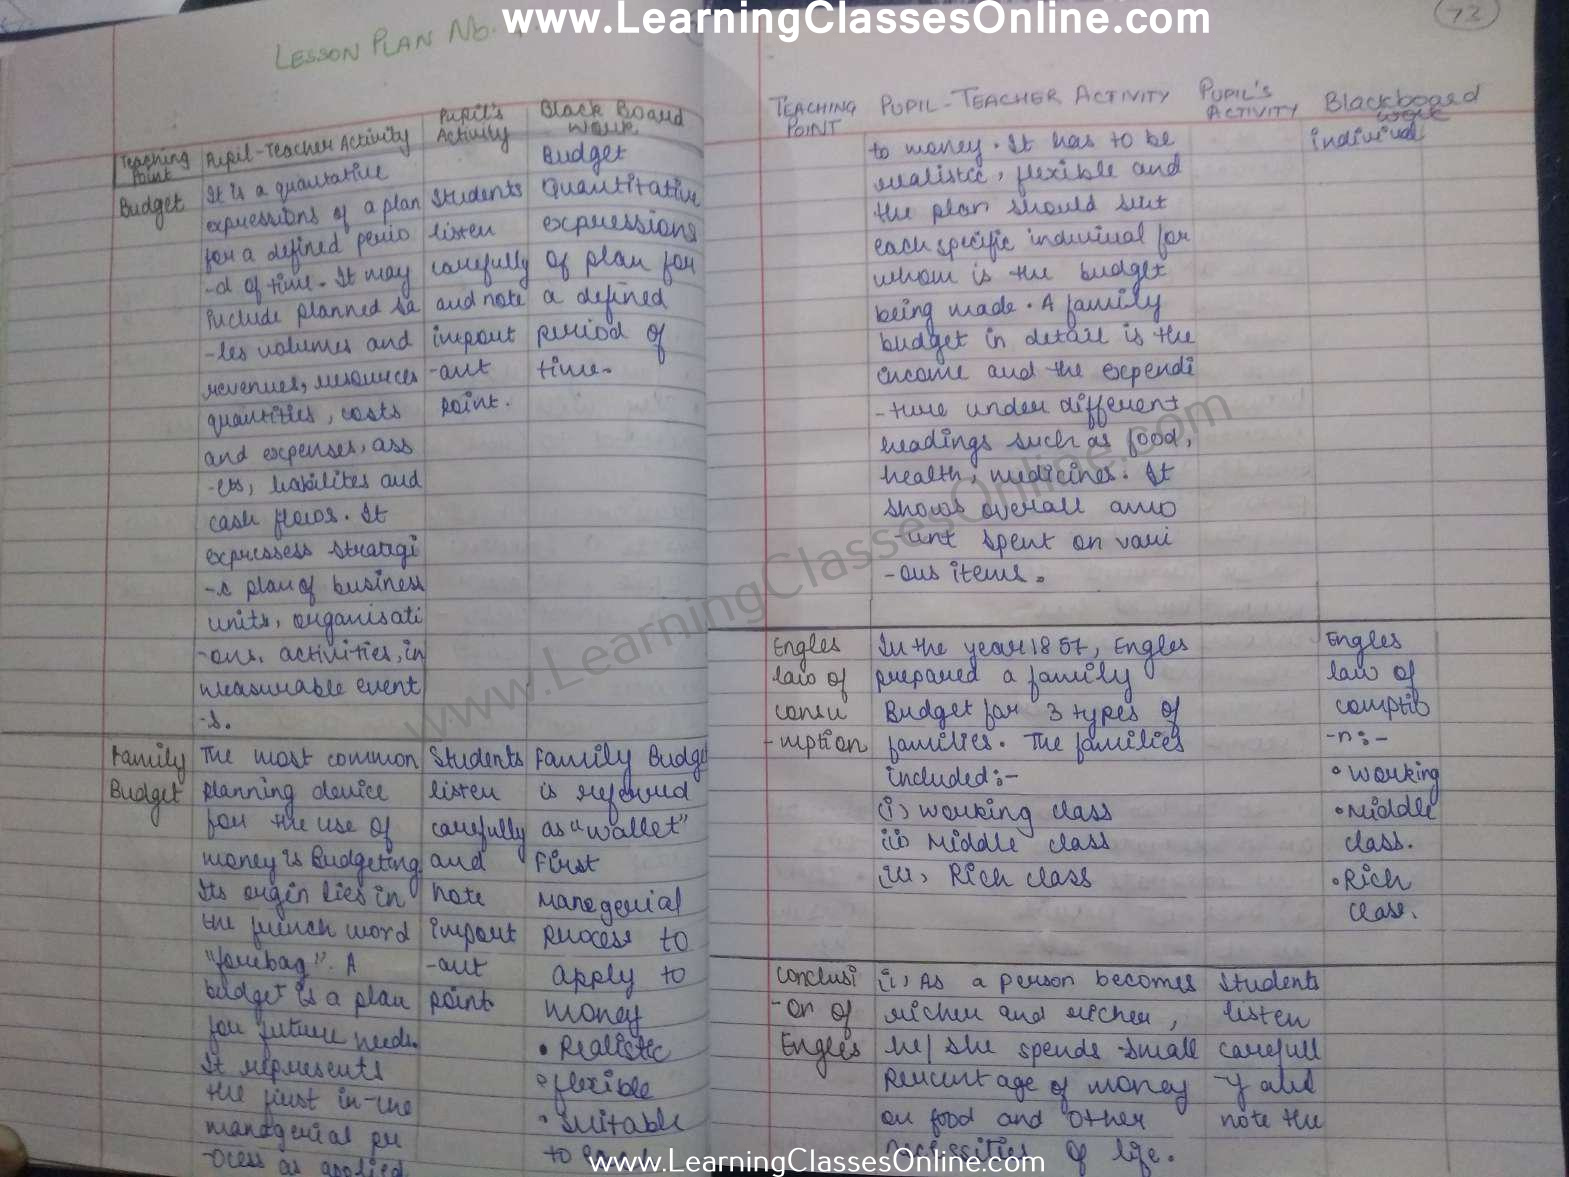 www.LearningClassesOnline.com
LESSON PLAN No.
Teaching Point
Pupil-Teacher Activity
Pupil's Activity
Black Board Work
Budget
It is a quantative
expressions of a plan
for a defined perio
-d of time. It may
include planned sa
-les volumes and
revenues, resources
quantities, costs
and expenses, ass
-ets, liabilites and
cash flows. It
expressess strategi
-c plan of business
units, organisati
-ons, activities, in
measurable event
-s.
Students
listen
carefully
and note
import
-ant
point.
Budget
Quantitative
expressions
of plan for
a defined
period of
time.
Family
Budget
The most common
planning device
for the use of
money is Budgeting
Its orgin lies in
the french word
A
budget is a plan
for future needs.
It represents
the first in-the
managerial pr
-ocess as applied
Students
listen
carefully
and
note
import
-ant
point
Family Budge
is refered
as "wallet"
First
manegerial
process to
apply to
money
• Realistic
• flexible
• Suitable
to
72
TEACHING POINT
PUPIL-TEACHER ACTIVITY
PUPIL'S ACTIVITY
Blackboard work
to money. It has to be
realistic, flexible and
the plan should suit
each specific individual for
whom is the budget
being made. A family
budget in detail is the
income and the expendi
-ture under different
headings such as food,
health, medicines. It
shows overall amo
-unt spent on vari
-ous items.
individual
Engles
law of
consu
-mption
In the year 1857, Engles
prepared a family
Budget for 3 types of
families. The families
included:-
(i) working class
(ii) Middle class
(iii) Rich class
Engles
law of
comptio
-n:-
• working
• Middle
class.
• Rich
class.
Conclusi
-on of
Engles
(i) As a person becomes
richer and richer,
he/she spends small
Percentage of money
on food and other
necessities of life.
Students
listen
carefull
-y and
note the
www.LearningClassesOnline.com
www.LearningClassesOnline.com